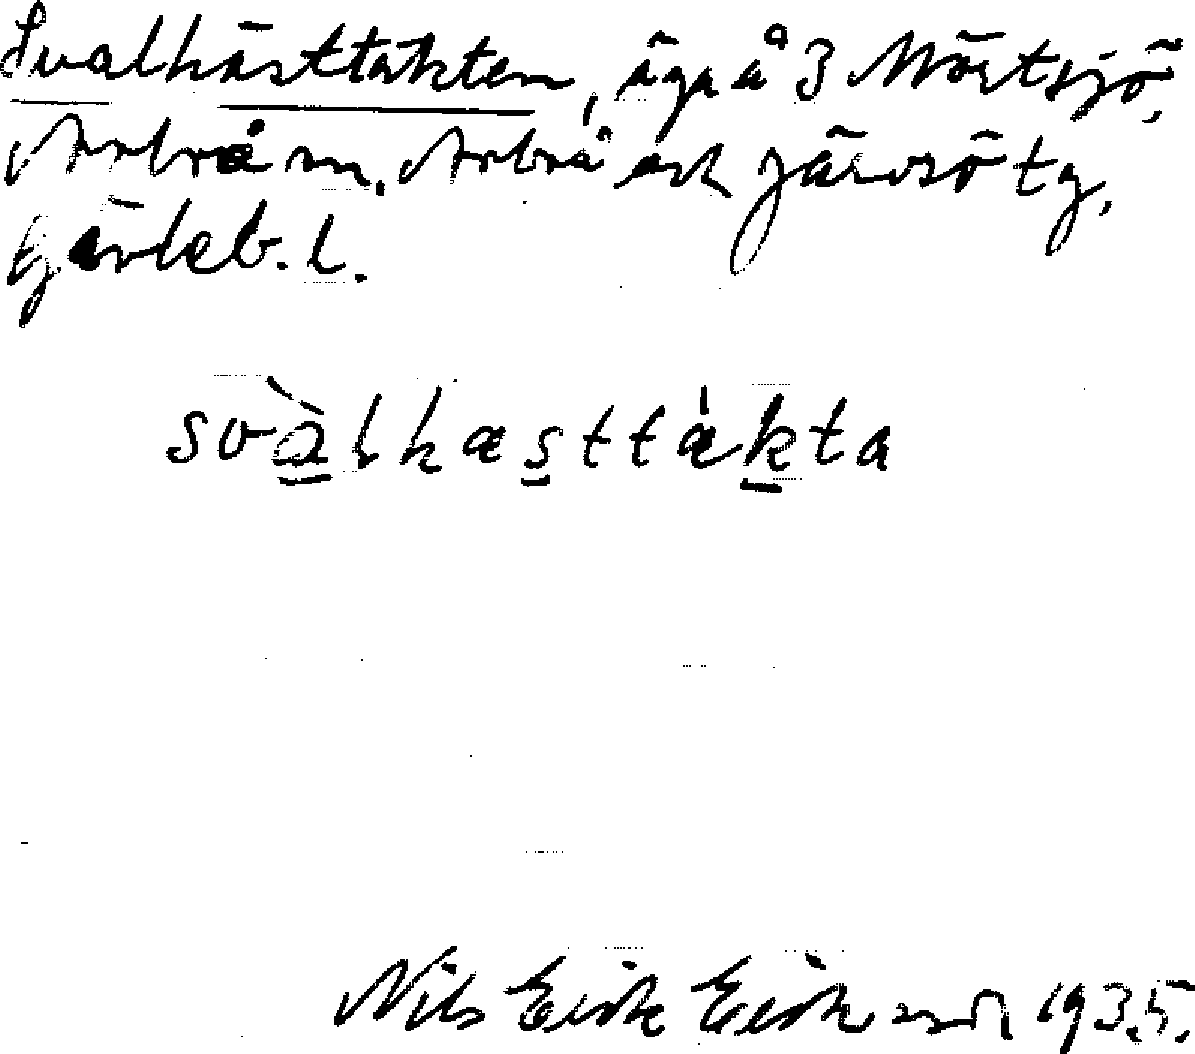 Svalhästtäkten, äga å 3 Mörtsjö,
Arbrå sn, Arbrå och Järvsö tg,
Gävleb. l.
svàlhæsttækta
Nils Erik Eriksson 1935.